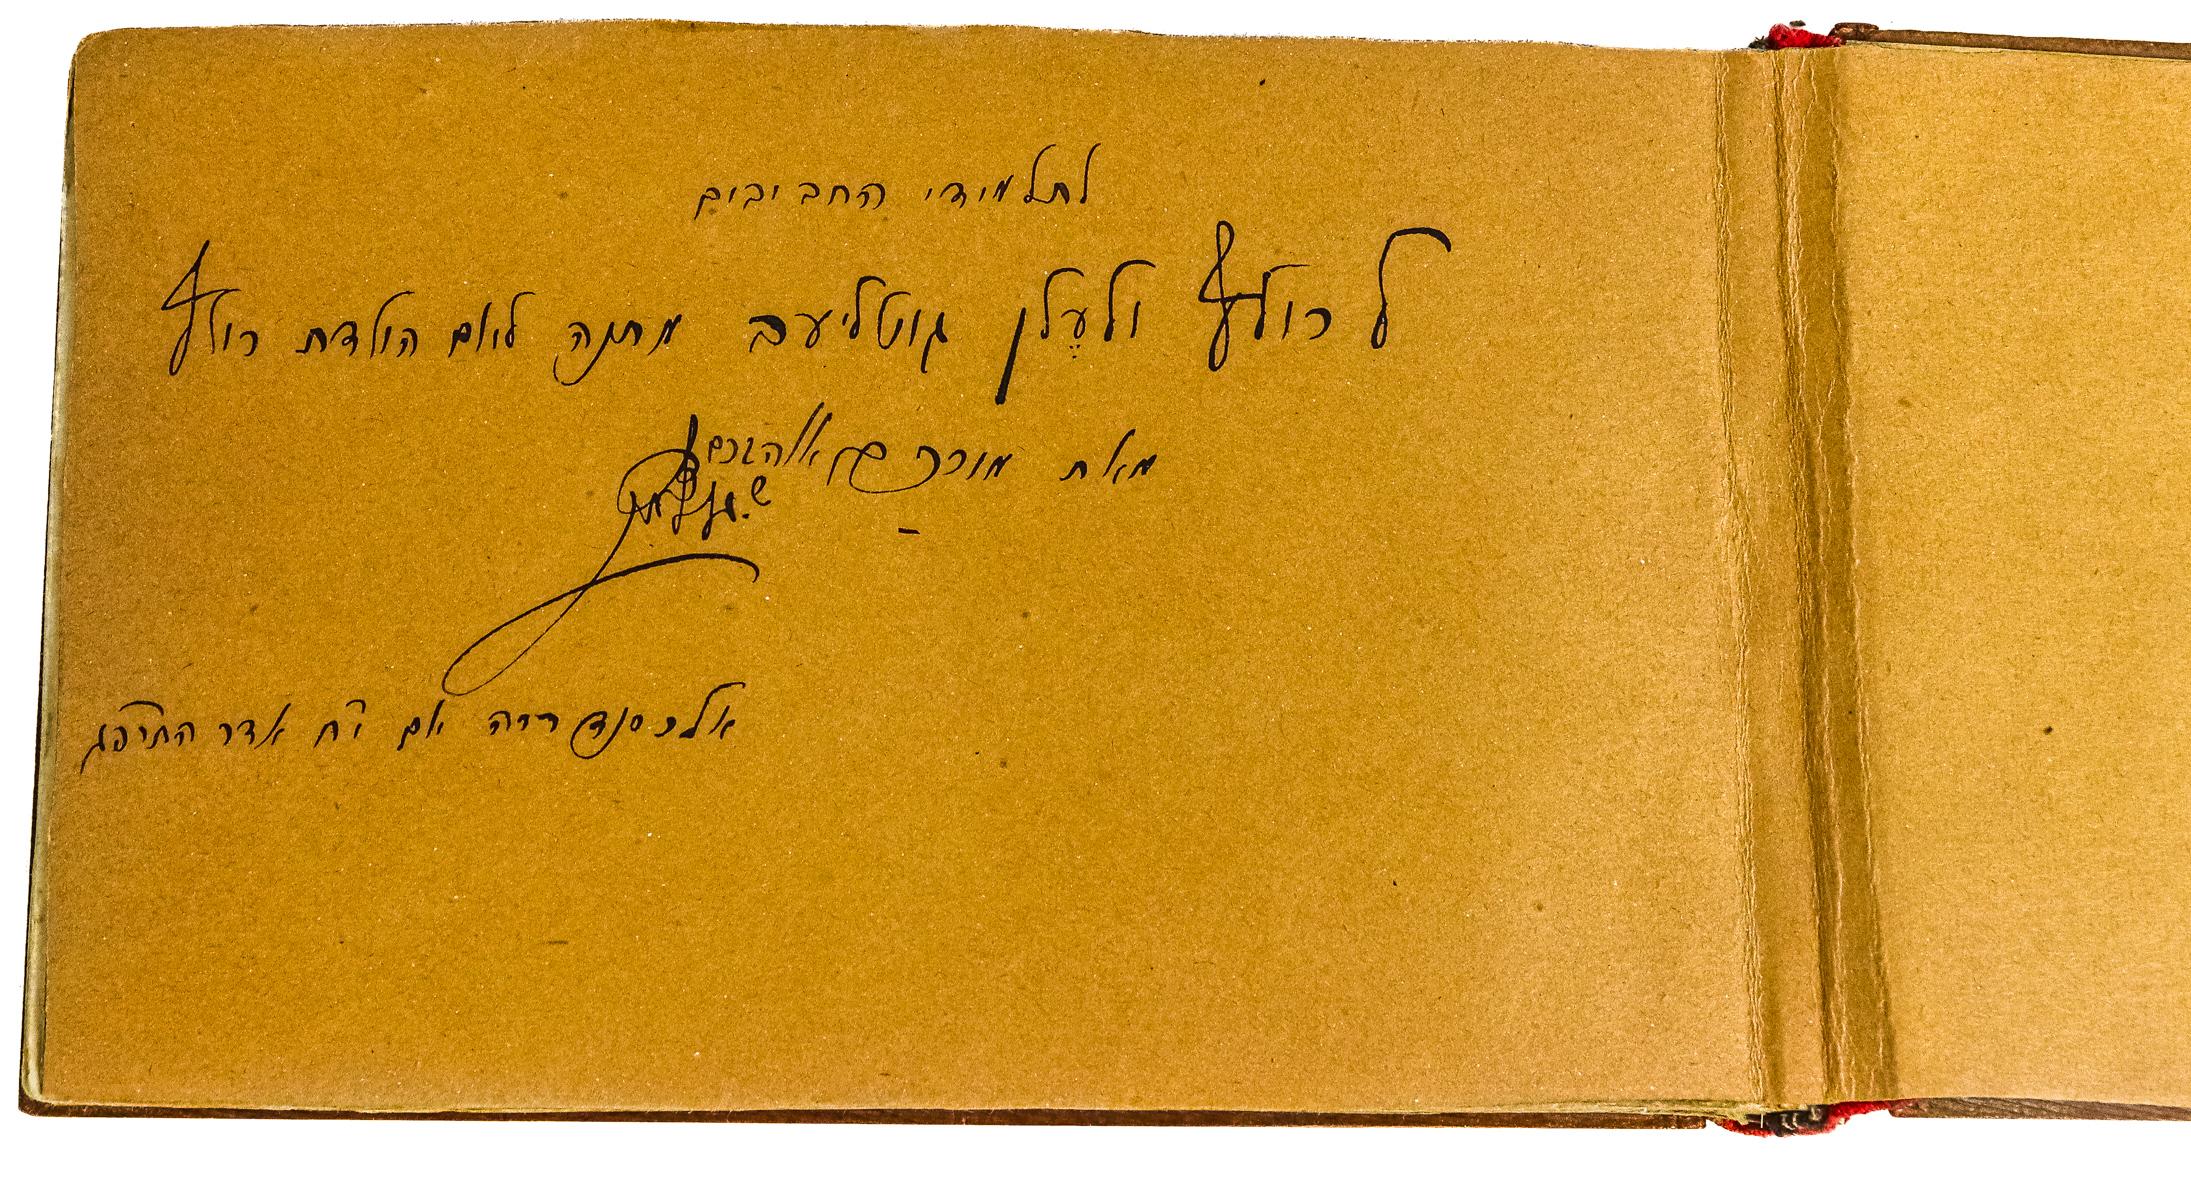 לתלמידי החביבים
ל רולף ולעֶלן גוטליעב מתנה ליום הולדת רולף
מאת מורכם ואוהבכם
ש.
אלכסנדריה יום י״ח אדר התרפ״ג